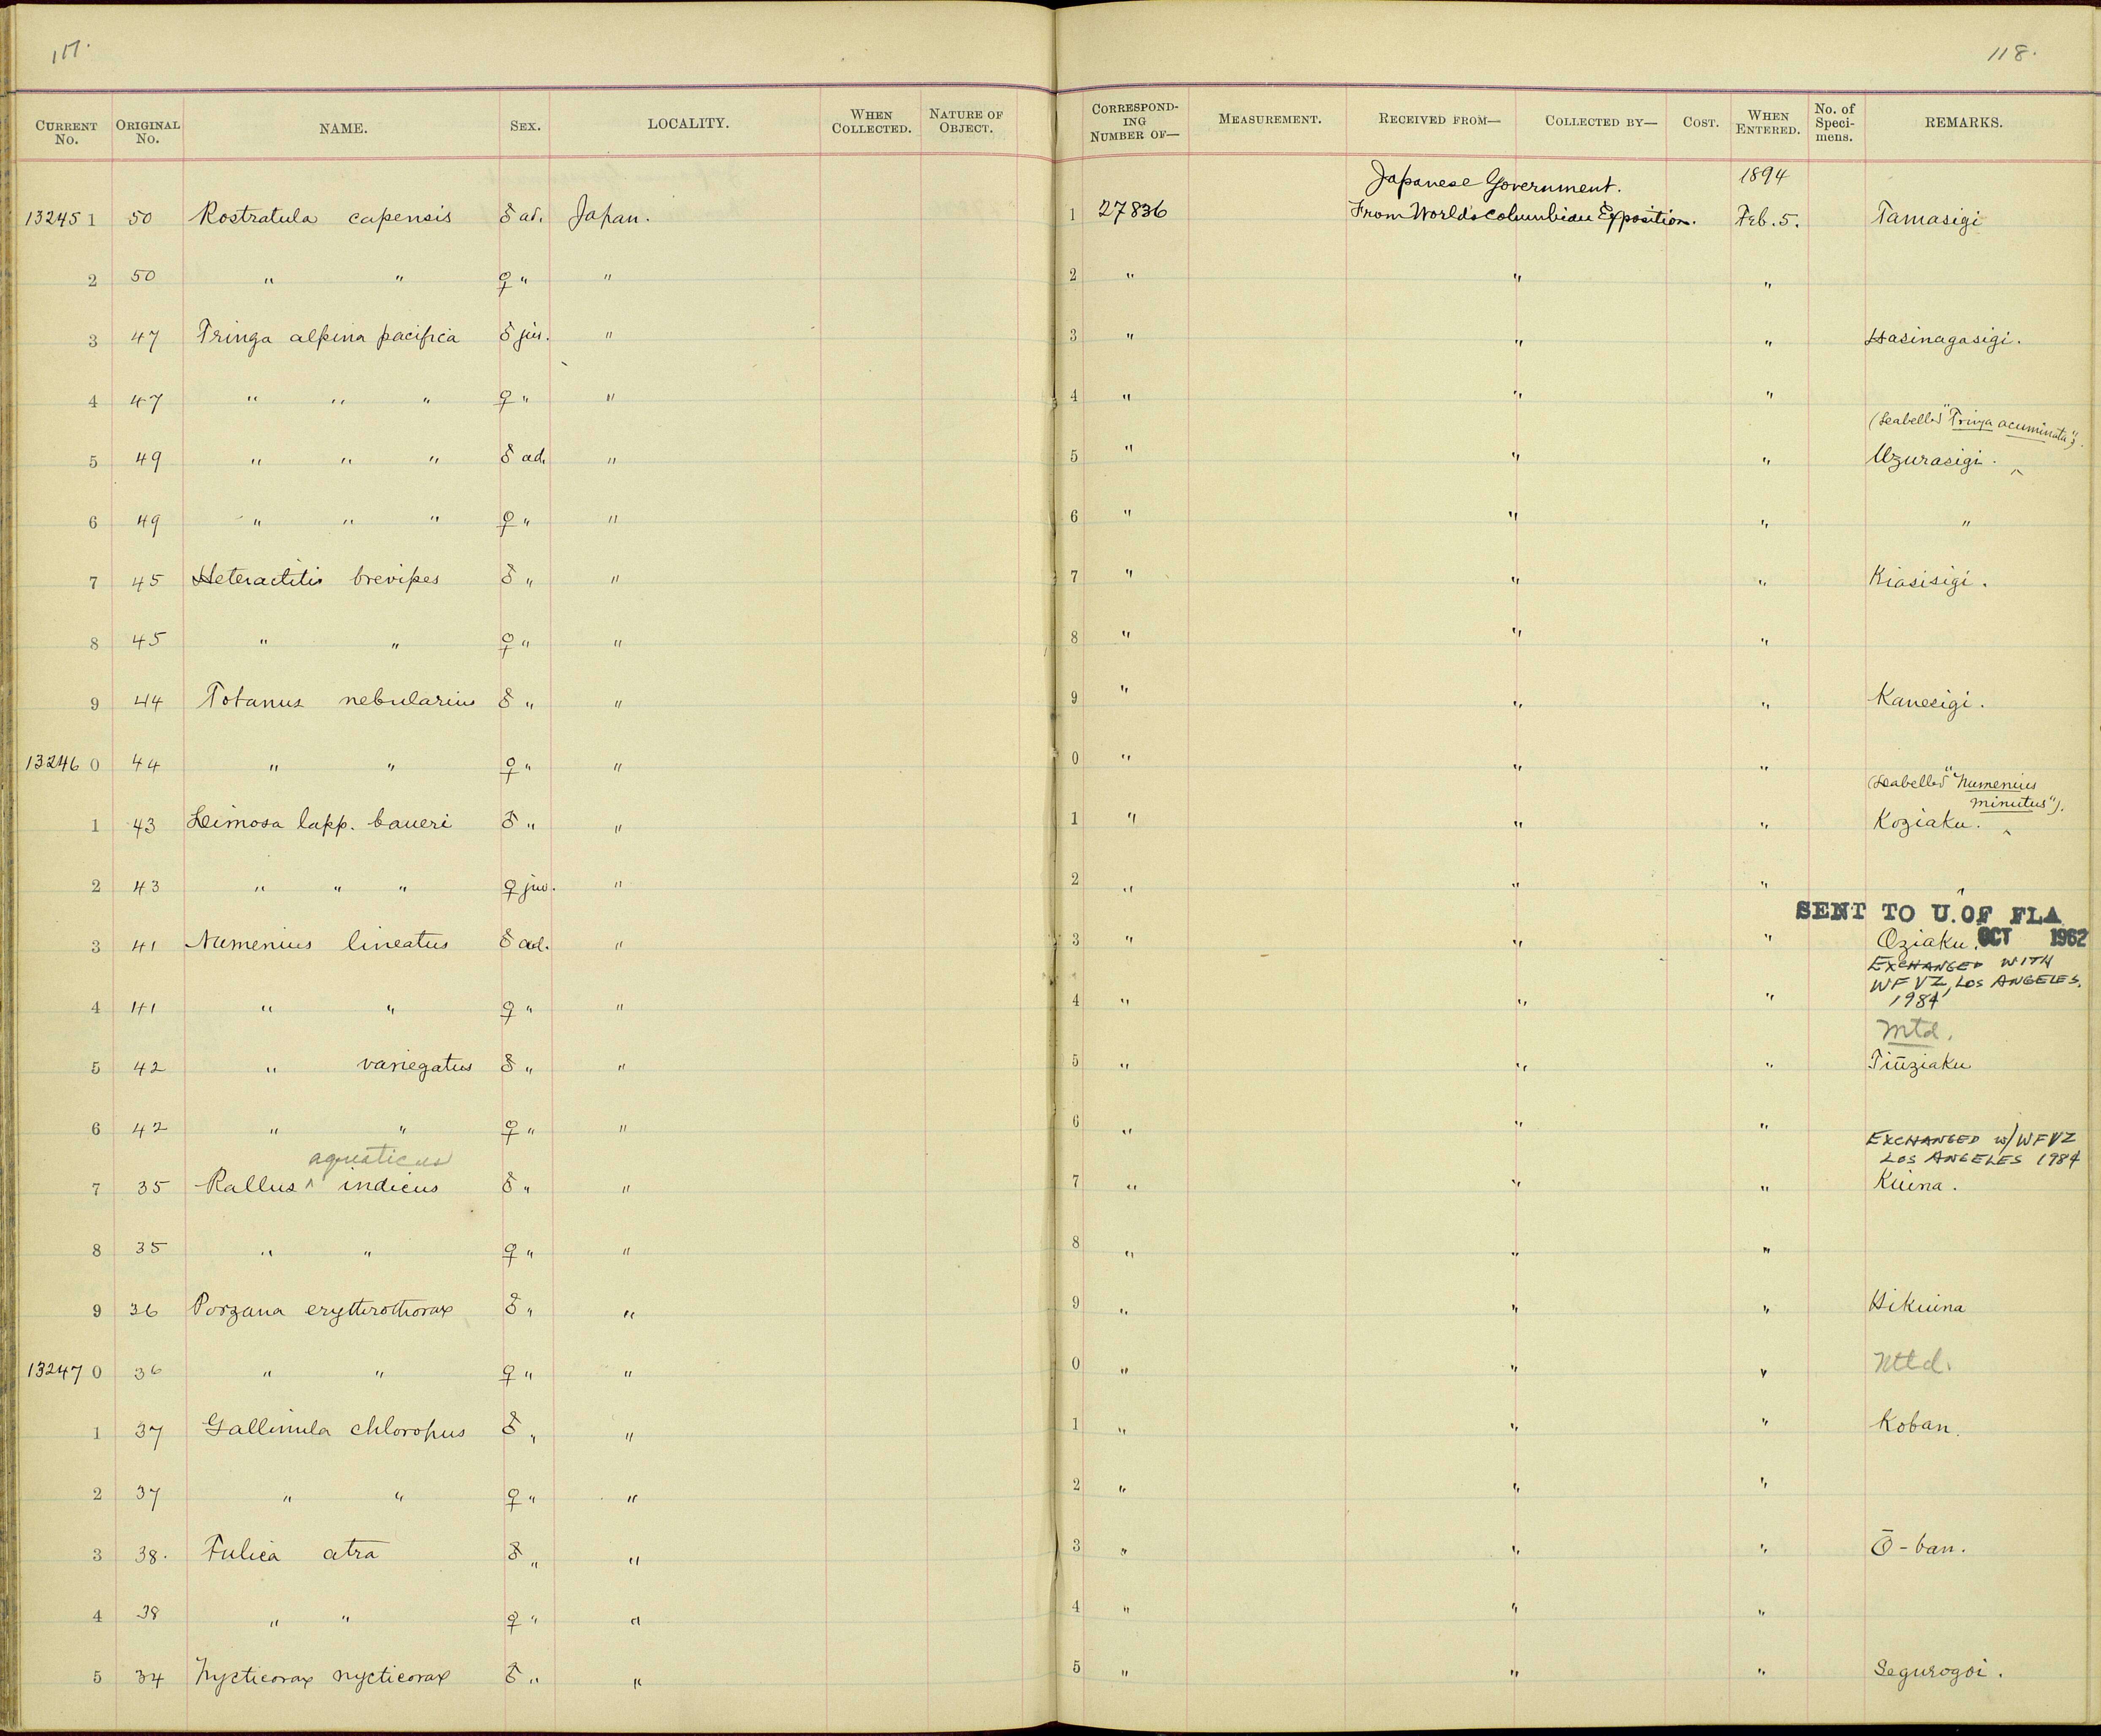 117. 118.
CURRENT No. ORIGINAL No. NAME. SEX. LOCALITY. WHEN COLLECTED. NATURE OF OBJECT. CORRESPONDING NUMBER OF— MEASUREMENT. RECEIVED FROM— COLLECTED BY— COST. WHEN ENTERED. No. of Specimens. REMARKS.
Japanese Government. 1894
13245 1 50 Rostratula capensis ♂ ad. Japan. 1 27836 From World's Columbian Exposition. Feb. 5. Tamasigi
2 50 " " ♀ " " 2 " " "
3 47 Tringa alpina pacifica ♂ juv. " 3 " " " Hasinagasigi.
4 47 " " " ♀ " " 4 " " "
(Labelled "Tringa acuminata").
5 49 " " " ♂ ad. " 5 " " " Uzurasigi. ^
6 49 " " " ♀ " " 6 " " " "
7 45 Heteractitis brevipes ♂ " " 7 " " " Kiasisigi.
8 45 " " ♀ " " 8 " " "
9 44 Totanus nebularius ♂ " " 9 " " " Kanesigi.
13246 0 44 " " ♀ " " 0 " " "
(Labelled "Numenius
minutus").
1 43 Limosa lapp. baueri ♂ " " 1 " " " Koziaku. ^
2 43 " " " ♀ juv. " 2 " " " "
SENT TO U. OF FLA
3 41 Numenius lineatus ♂ ad. " 3 " " " Oziaku. OCT 1962
EXCHANGED WITH
WFVZ, LOS ANGELES.
4 41 " " ♀ " " 4 " " " 1984
Mtd.
5 42 " variegatus ♂ " " 5 " " " Tiūziaku
6 42 " " ♀ " " 6 " " "
EXCHANGED W/WFVZ
LOS ANGELES 1984
aquaticus
7 35 Rallus ^ indicus ♂ " " 7 " " " Kuina.
8 35 " " ♀ " " 8 " " "
9 36 Porzana erythrothorax ♂ " " 9 " " " Hikuina
13247 0 36 " " ♀ " " 0 " " " Mtd.
1 37 Gallinula chloropus ♂ " " 1 " " " Koban.
2 37 " " ♀ " " 2 " " "
3 38. Fulica atra ♂ " " 3 " " " Ō-ban.
4 38 " " ♀ " " 4 " " "
5 34 Nycticorax nycticorax ♂ " " 5 " " " Segurogoi.